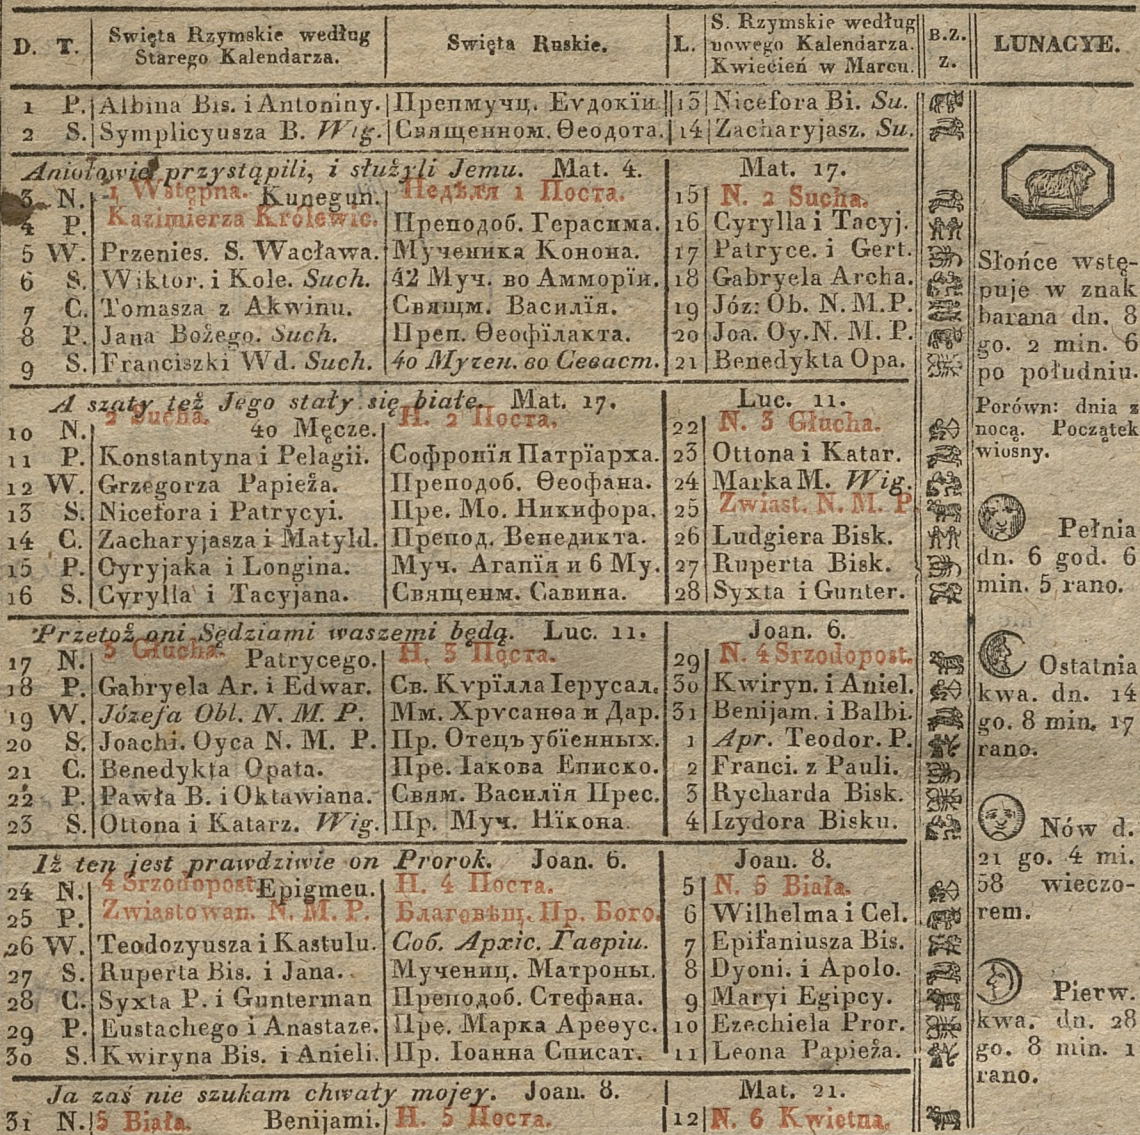 D. T. Swięta Rzymskie według Starego Kalendarza. Swięta Ruskie. L. S. Rzymskie według nowego Kalendarza. Kwiecień w Marcu. B.Z. Z. LUNACYE.
1 P. Albina Bis. i Antoniny. Препмучц. Еѵдокїи 13 Nicefora Bi. Su.
2 S. Symplicyusza B. Wig. Священном. Ѳеодота. 14 Zacharyjasz. Su.
Aniołowie przystąpili, i służyli Jemu. Mat. 4. Mat. 17.
3 N. 1 Wstępna. Kunegun. Недѣля 1 Поста. 15 N. 2 Sucha.
4 P. Kazimierza Królewic. Преподоб. Герасима. 16 Cyrylla i Tacyj.
5 W. Przenies. S. Wacława. Мученика Конона. 17 Patryce. i Gert.
6 S. Wiktor. i Kole. Such. 42 Муч. во Амморїи. 18 Gabryela Archa.
7 C. Tomasza z Akwinu. Свящм. Василїя. 19 Józ: Ob. N. M. P.
8 P. Jana Bożego. Such. Преп. Ѳеофїлакта. 20 Joa. Oy. N. M. P.
9 S. Franciszki Wd. Such. 40 Мучен. во Севаст. 21 Benedykta Opa.
A szaty też Jego stały się białe. Mat. 17. Luc. 11.
10 N. 2 Sucha. 40 Męcze. Н. 2 Поста. 22 N. 3 Głucha.
11 P. Konstantyna i Pelagii. Софронїя Патрїарха. 23 Ottona i Katar.
12 W. Grzegorza Papieża. Преподоб. Ѳеофана. 24 Marka M. Wig.
13 S. Nicefora i Patrycyi. Пре. Мо. Никифора. 25 Zwiast. N. M. P
14 C. Zacharyjasza i Matyld. Препод. Венедикта. 26 Ludgiera Bisk.
15 P. Cyryjaka i Longina. Муч. Агапїя и 6 Му. 27 Ruperta Bisk.
16 S. Cyrylla i Tacyjana. Священм. Савина. 28 Syxta i Gunter.
Przetoż oni Sędziami waszemi będą. Luc. 11. Joan. 6.
17 N. 3 Głucha. Patrycego. Н. 3 Поста. 29 N. 4 Srzodopost.
18 P. Gabryela Ar. i Edwar. Св. Кѵрїлла Іерусал. 30 Kwiryn. i Aniel.
19 W. Józefa Obl. N. M. P. Мм. Хрѵсанѳа и Дар. 31 Benijam. i Balbi.
20 S. Joachi. Oyca N. M. P. Пр. Отецъ убїенных. 1 Apr. Teodor. P.
21 C. Benedykta Opata. Пре. Іакова Еписко. 2 Franci. z Pauli.
22 P. Pawła B. i Oktawiana. Свям. Василїя Прес. 3 Rycharda Bisk.
23 S. Ottona i Katarz. Wig. Пр. Муч. Нїкона. 4 Izydora Bisku.
Iż ten jest prawdziwie on Prorok. Joan. 6. Joan. 8.
24 N. 4 Srzodopost. Epigmeu. Н. 4 Поста. 5 N. 5 Biała.
25 P. Zwiastowan. N. M. P. Благовѣщ. Пр. Бого. 6 Wilhelma i Cel.
26 W. Teodozyusza i Kastulu. Соб. Архіс. Гавріи. 7 Epifaniusza Bis.
27 S. Ruperta Bis. i Jana. Мучениц. Матроны. 8 Dyoni. i Apolo.
28 C. Syxta P. i Gunterman Преподоб. Стефана. 9 Maryi Egipcy.
29 P. Eustachego i Anastaze. Пре. Марка Ареѳус. 10 Ezechiela Pror.
30 S. Kwiryna Bis. i Anieli. Пр. Іоанна Списат. 11 Leona Papieża.
Ja zaś nie szukam chwały mojey. Joan. 8. Mat. 21.
31 N. 5 Biała. Benijami. Н. 5 Поста. 12 N. 6 Kwietna.
Słońce wstę-
puje w znak
barana dn. 8
go. 2 min. 6
po południu.
Porówn: dnia z
nocą. Początek
wiosny.
Pełnia
dn. 6 god. 6
min. 5 rano.
Ostatnia
kwa. dn. 14
go. 8 min. 17
rano.
Nów d.
21 go. 4 mi.
58 wieczo-
rem.
Pierw.
kwa. dn. 28
go. 8 min. 1
rano.